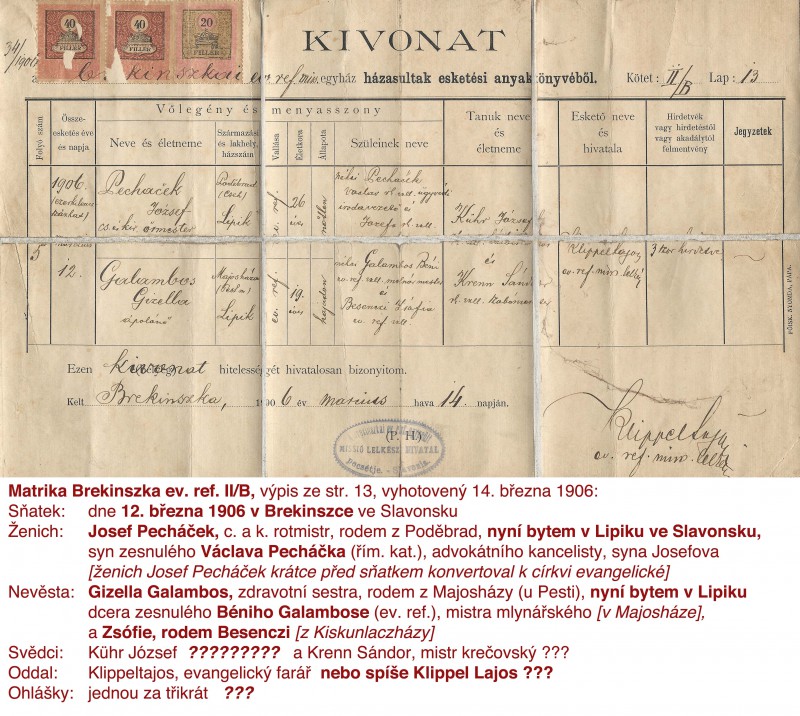 40
FILLÉR
40
FILLÉR
20
FILLÉR
34/1906
KIVONAT
ev. ref. miss. egyház házasultak esketési anyakönyvéből. Kötet: II/B Lap: 13
Folyó szám
Össze-esketés éve és napja
Vőlegény és menyasszony
Neve és életneme
Származási és lakhely, házszám
Vallása
Életkora
Állapota
Szüleinek neve
Tanuk neve és életneme
Eskető neve és hivatala
Hirdetvék vagy hirdetéstől vagy akadálytól felmentvény
Jegyzetek
1906.
Pecháček
József
Lipik
ev. ref.
26
éves
nőtlen
néhai Pecháček
József
Kühr József
5
12.
Galambos
Gizella
ápolónő
Lipik
ev. ref.
19.
éves
hajadon
néhai Galambos Béni
ev. ref. vall. molnár mester
és
Besenczi Zsófia
ev. ref. vall.
és
Krenn Sándor
Klippel Lajos
ev. ref. miss. lelkész
3szor hirdetve
FŐISK. NYOMDA, PÁPA.
Ezen kivonat hitelességét hivatalosan bizonyitom.
Kelt Brekinszka, 1906 év marcius hava 14. napján.
(P. H.)
MISSIÓ LELKÉSZ HIVATAL
Klippel Lajos
ev. ref. miss. lelkész
Matrika Brekinszka ev. ref. II/B, výpis ze str. 13, vyhotovený 14. března 1906:
Sňatek: dne 12. března 1906 v Brekinszce ve Slavonsku
Ženich: Josef Pecháček, c. a k. rotmistr, rodem z Poděbrad, nyní bytem v Lipiku ve Slavonsku,
syn zesnulého Václava Pecháčka (řím. kat.), advokátního kancelisty, syna Josefova
[ženich Josef Pecháček krátce před sňatkem konvertoval k církvi evangelické]
Nevěsta: Gizella Galambos, zdravotní sestra, rodem z Majosházy (u Pesti), nyní bytem v Lipiku
dcera zesnulého Béniho Galambose (ev. ref.), mistra mlynářského [v Majosháze],
a Zsófie, rodem Besenczi [z Kiskunlaczházy]
Svědci: Kühr József ????????? a Krenn Sándor, mistr krečovský ???
Oddal: Klippeltajos, evangelický farář nebo spíše Klippel Lajos ???
Ohlášky: jednou za třikrát ???